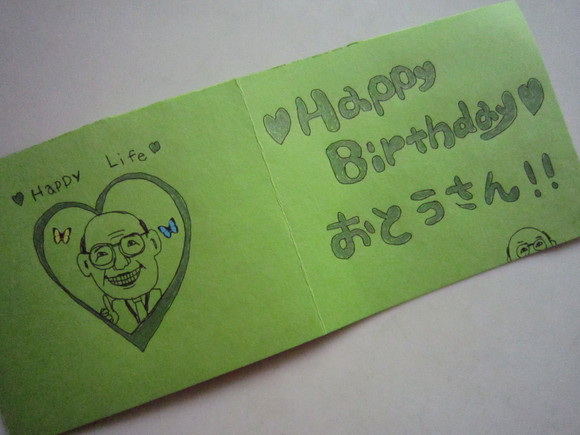 ♥Happy Life♥
♥Happy
Birthday♥
おとうさん!!